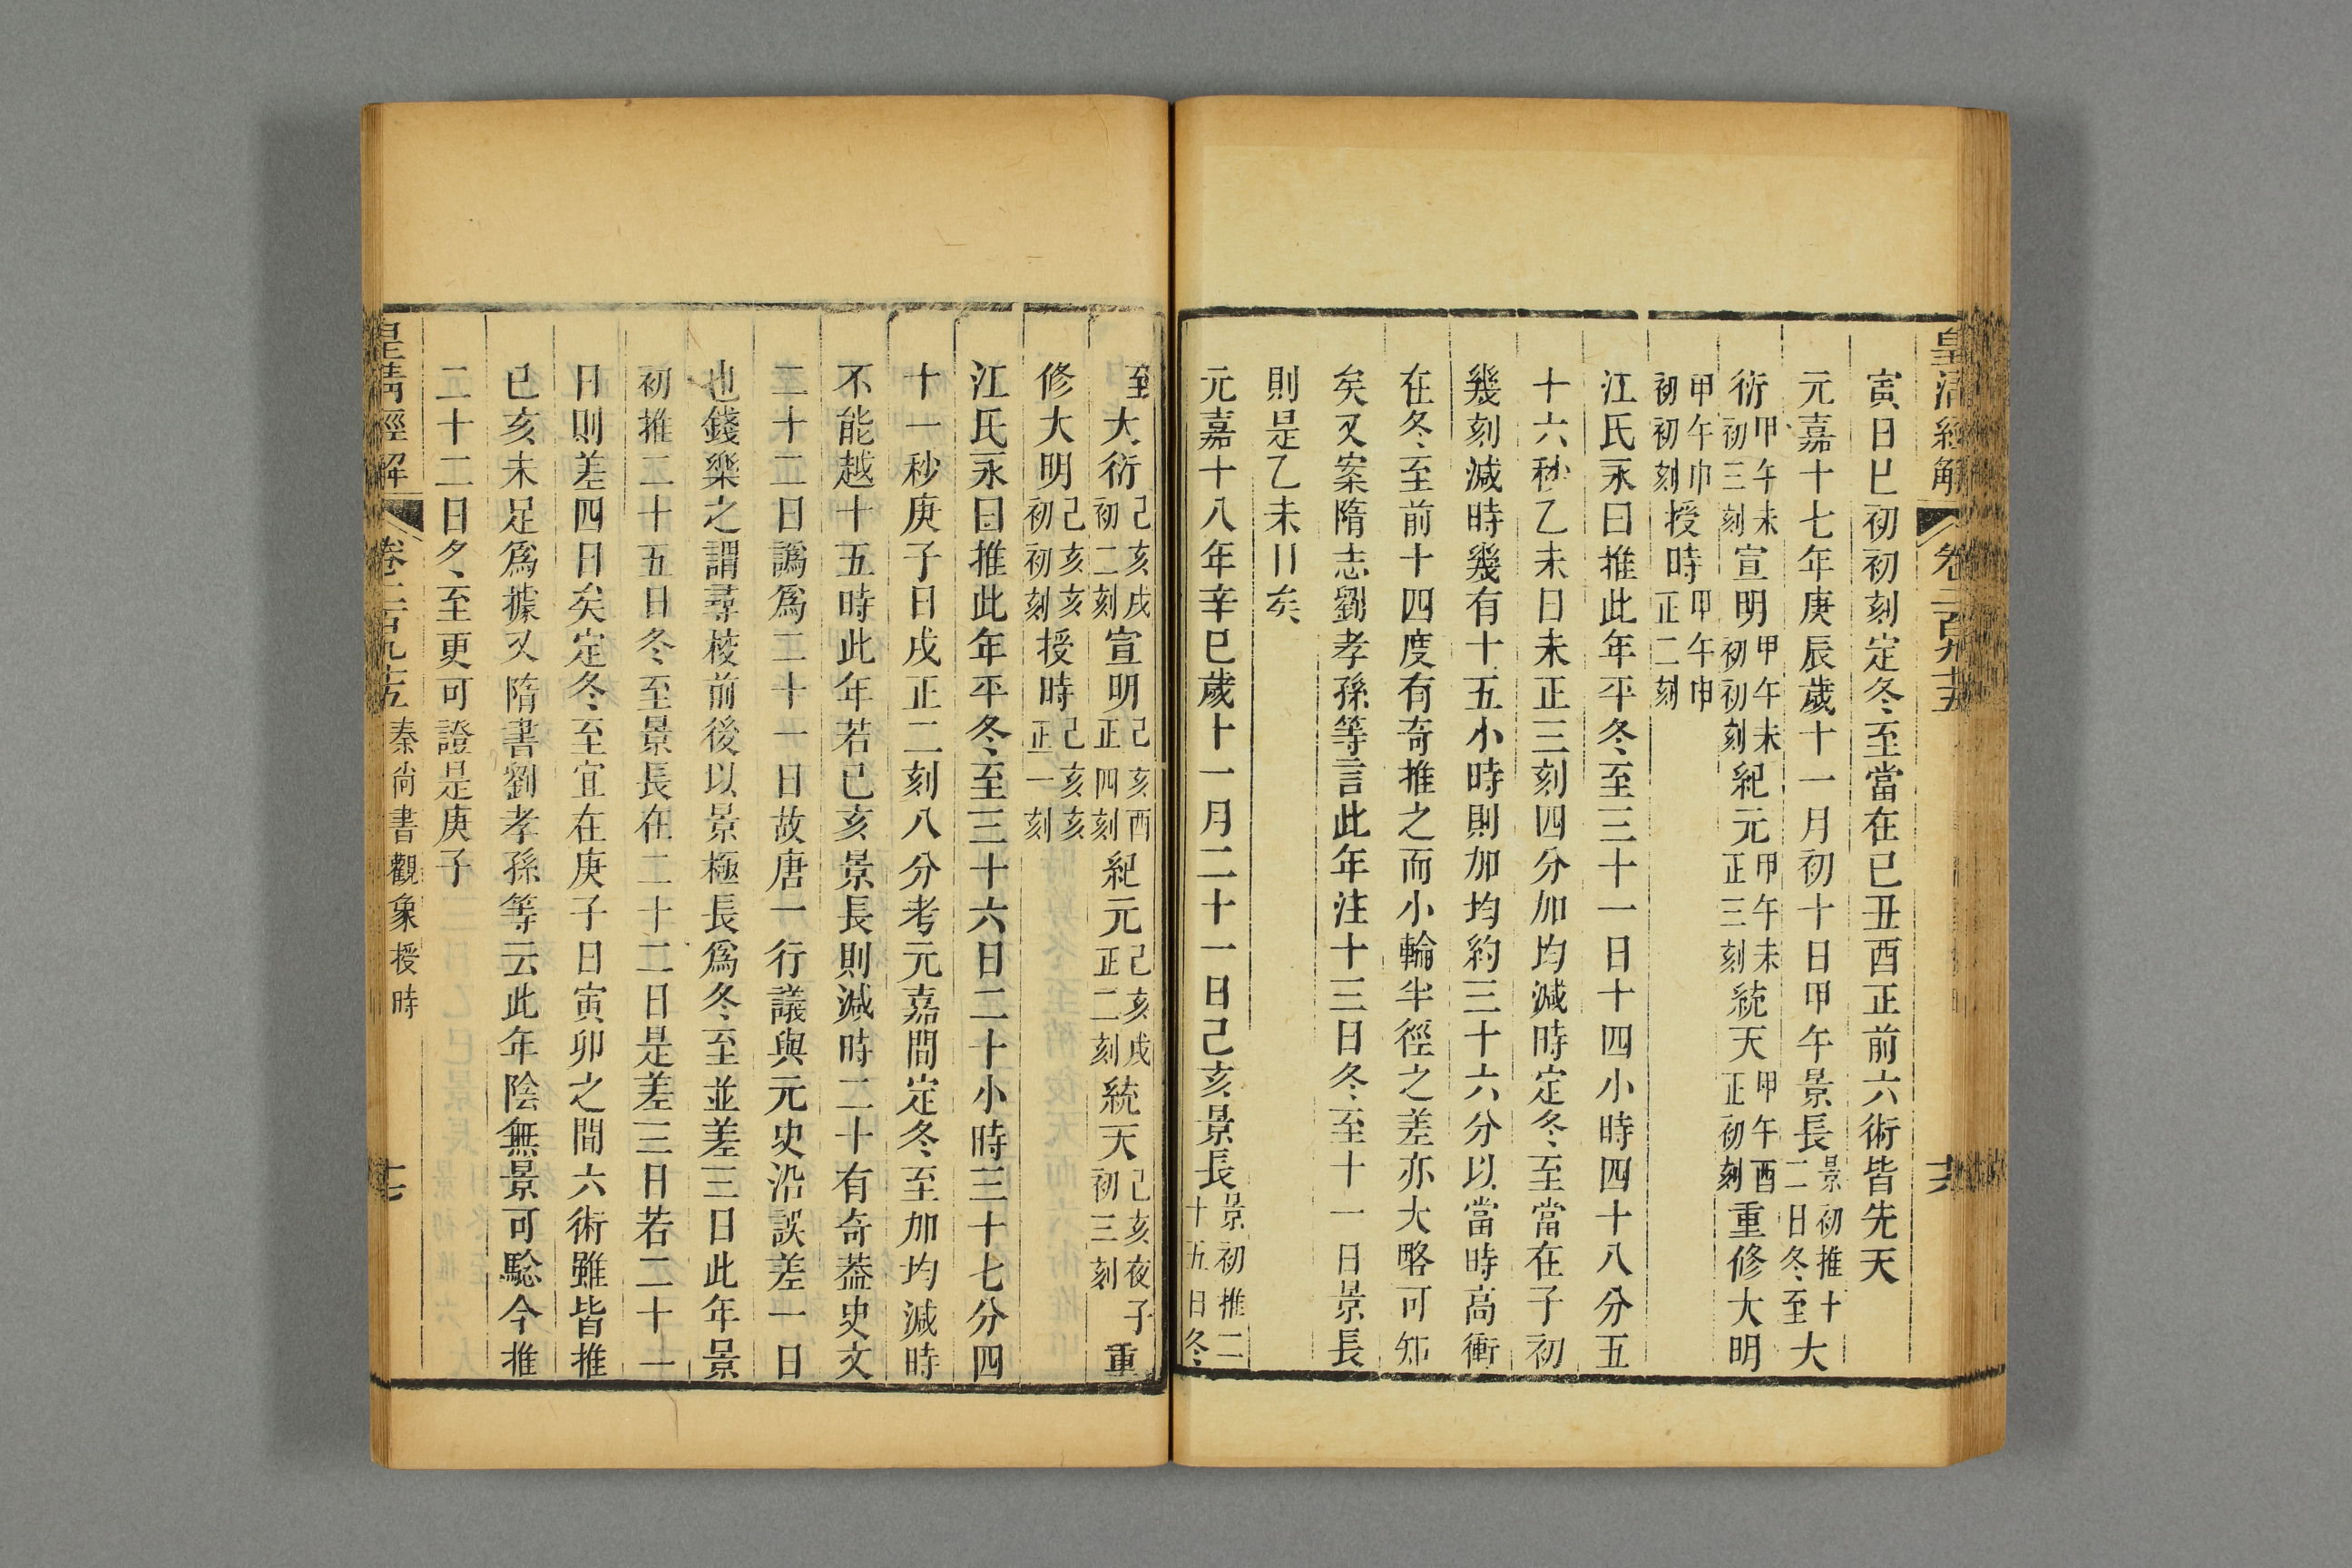 皇清經解 卷二百九十五 十六
寅日巳初初刻定冬至當在己丑酉正前六術皆先天
元嘉十七年庚辰歲十一月初十日甲午景長景初推十二日冬至大
衍甲午未初三刻宣明甲午未初初刻紀元甲午未正三刻統天甲午酉正初刻重修大明
甲午申初初刻授時甲午申正二刻
江氏永曰推此年平冬至三十一日十四小時四十八分五
十六秒乙未日未正三刻四分加均減時定冬至當在子初
幾刻減時幾有十五小時則加均約三十六分以當時高衝
在冬至前十四度有奇推之而小輪半徑之差亦大略可知
矣又案隋志劉孝孫等言此年注十三日冬至十一日景長
則是乙未日矣
元嘉十八年辛巳歲十一月二十一日己亥景長景初推二十五日冬
至大衍己亥戌初二刻宣明己亥酉正四刻紀元己亥戌正二刻統天己亥夜子初三刻重
修大明己亥亥初初刻授時己亥亥正一刻
江氏永曰推此年平冬至三十六日二十小時三十七分四
十一秒庚子日戌正二刻八分考元嘉間定冬至加均減時
不能越十五時此年若己亥景長則減時二十有奇葢史文
二十二日譌爲二十一日故唐一行議與元史沿誤差一日
也錢樂之謂尋校前後以景極長爲冬至並差三日此年景
初推二十五日冬至景長在二十二日是差三日若二十一
日則差四日矣定冬至宜在庚子日寅卯之間六術雖皆推
己亥未足爲據又隋書劉孝孫等云此年陰無景可騐今推
二十二日冬至更可證是庚子
皇清經解 卷二百九十五 秦尚書觀象授時 十七